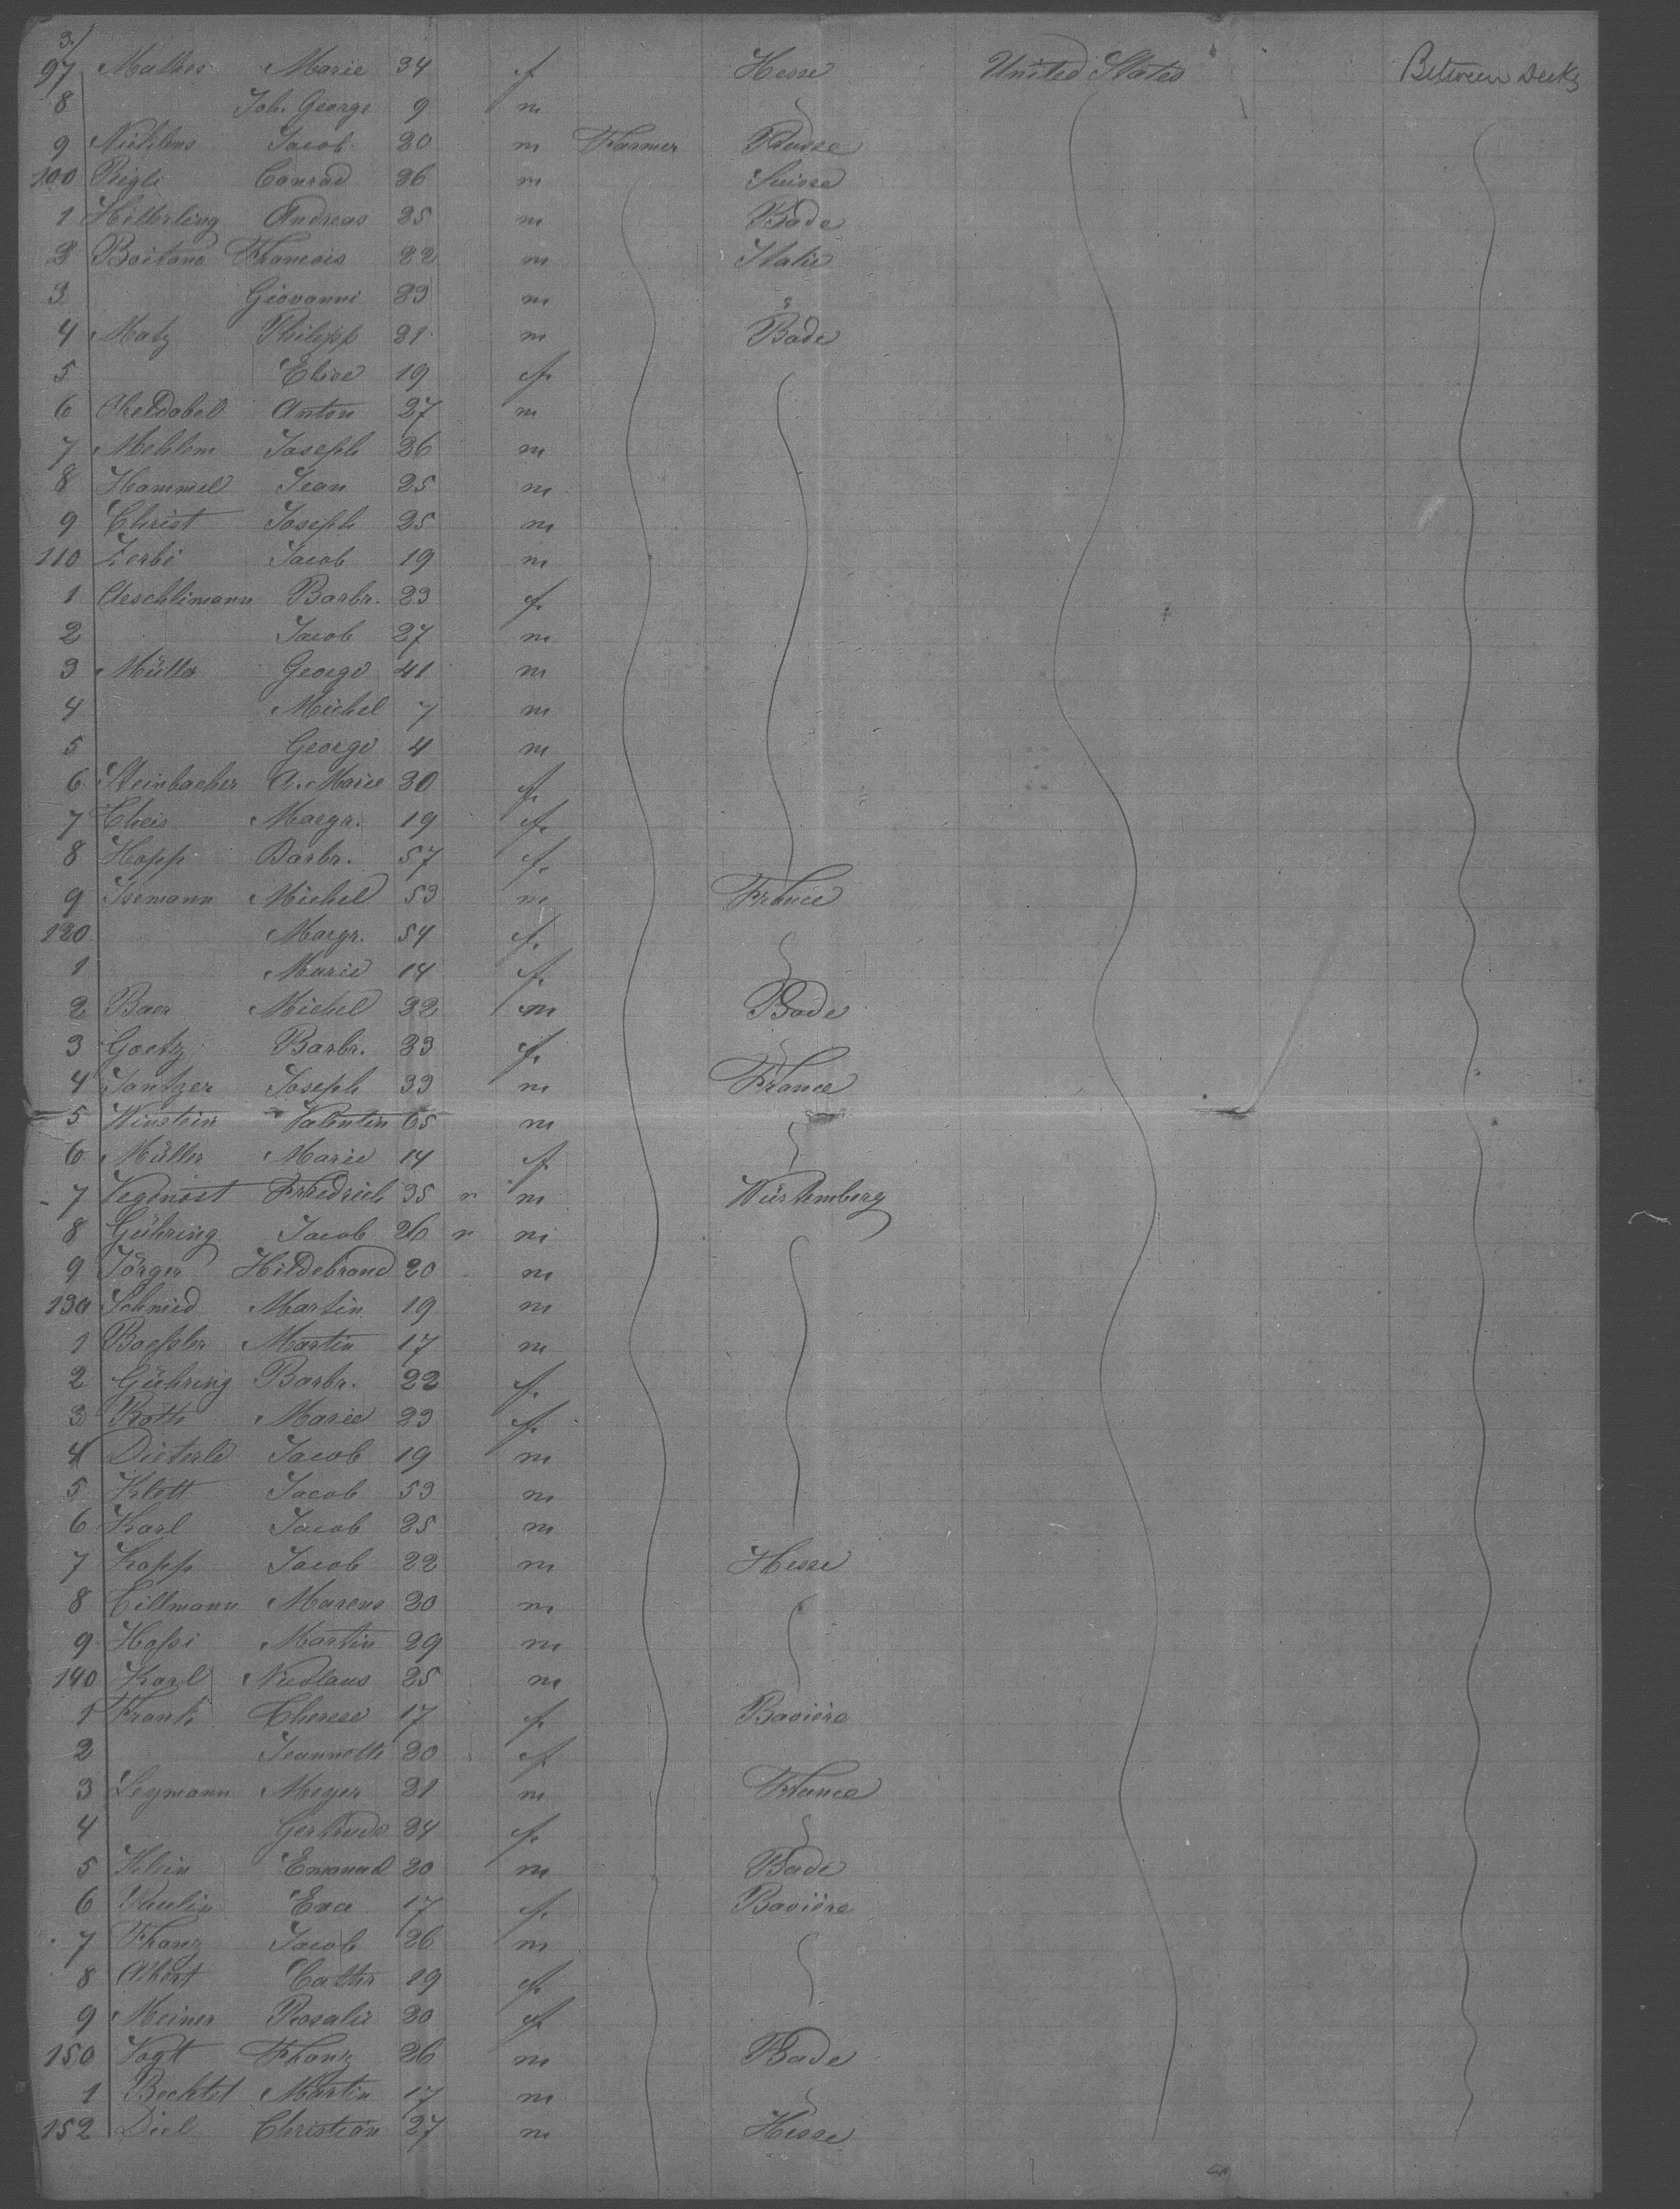 3/
97 Mathes Marie 34 f Hesse United States Between Decks
8 Joh. George 9 m
9 Jacob 20 m Farmer Prusse
100 Conrad 36 m Suisse
1 Hitterling Andreas 25 m Bade
2 Boitano Francois 22 m Italie
3 Giovanni 23 m
4 Matz Philipp 21 m Bade
5 Elise 19 f.
6 Anton 27 m
7 Mehlem Joseph 26 m
8 Hammel Jean 25 m
9 Christ Joseph 25 m
110 Zerbi Jacob 19 m
1 Aeschlimann Barbr. 23 f.
2 Jacob 27 m
3 Müller George 41 m
4 Michel 7 m
5 George 4 m
6 Steinbacher A. Marie 30 f.
7 Theis Margr. 19 f.
8 Hopp Barbr. 57 f.
9 Isemann Michel 53 m France
120 Margr. 54 f.
1 Marie 14 f.
2 Baer Michel 32 m Bade
3 Goetz Barbr. 33 f.
4 Jantzer Joseph 33 m France
5 Winstein Valentin 65 m
6 Müller Marie 14 f.
7 Friedrich 35 m Würtemberg
8 Gühring Jacob 26 m
9 Jörger Hildebrand 20 m
130 Schmid Martin 19 m
1 Boessler Martin 17 m
2 Gühring Barbr. 22 f.
3 Roth Marie 23 f.
4 Dieterle Jacob 19 m
5 Klott Jacob 53 m
6 Karl Jacob 25 m
7 Kopp Jacob 22 m Hesse
8 Tillmann Marcus 20 m
9 Hossi Martin 29 m
140 Karl Nicolaus 25 m
1 Frank Therese 17 f. Bavière
2 Jeannette 20 f
3 Leymann Meyer 31 m France
4 Gertrude 24 f.
5 Klein Emanuel 20 m Bade
6 Paulin Eva 17 f. Bavière
7 Franz Jacob 26 m
8 Cathr 19 f.
9 Meiner Rosalie 20 f
150 Vogt Franz 26 m Bade
1 Bechtel Martin 17 m
152 Diel Christian 27 m Hesse